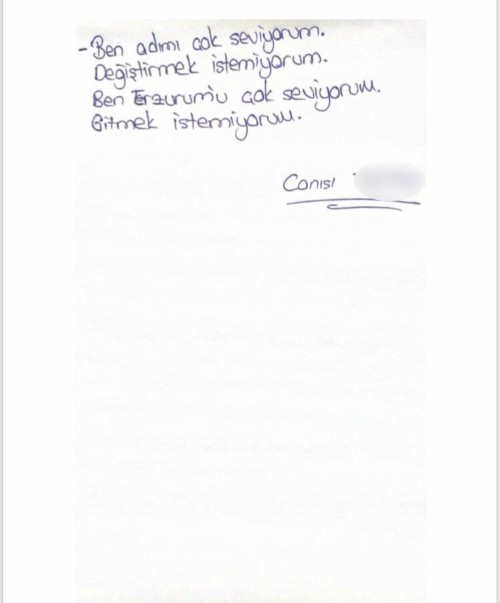 -Ben adımı çok seviyorum.
Değiştirmek istemiyorum.
Ben Erzurumu çok seviyorum.
Gitmek istemiyorum.
Canısı